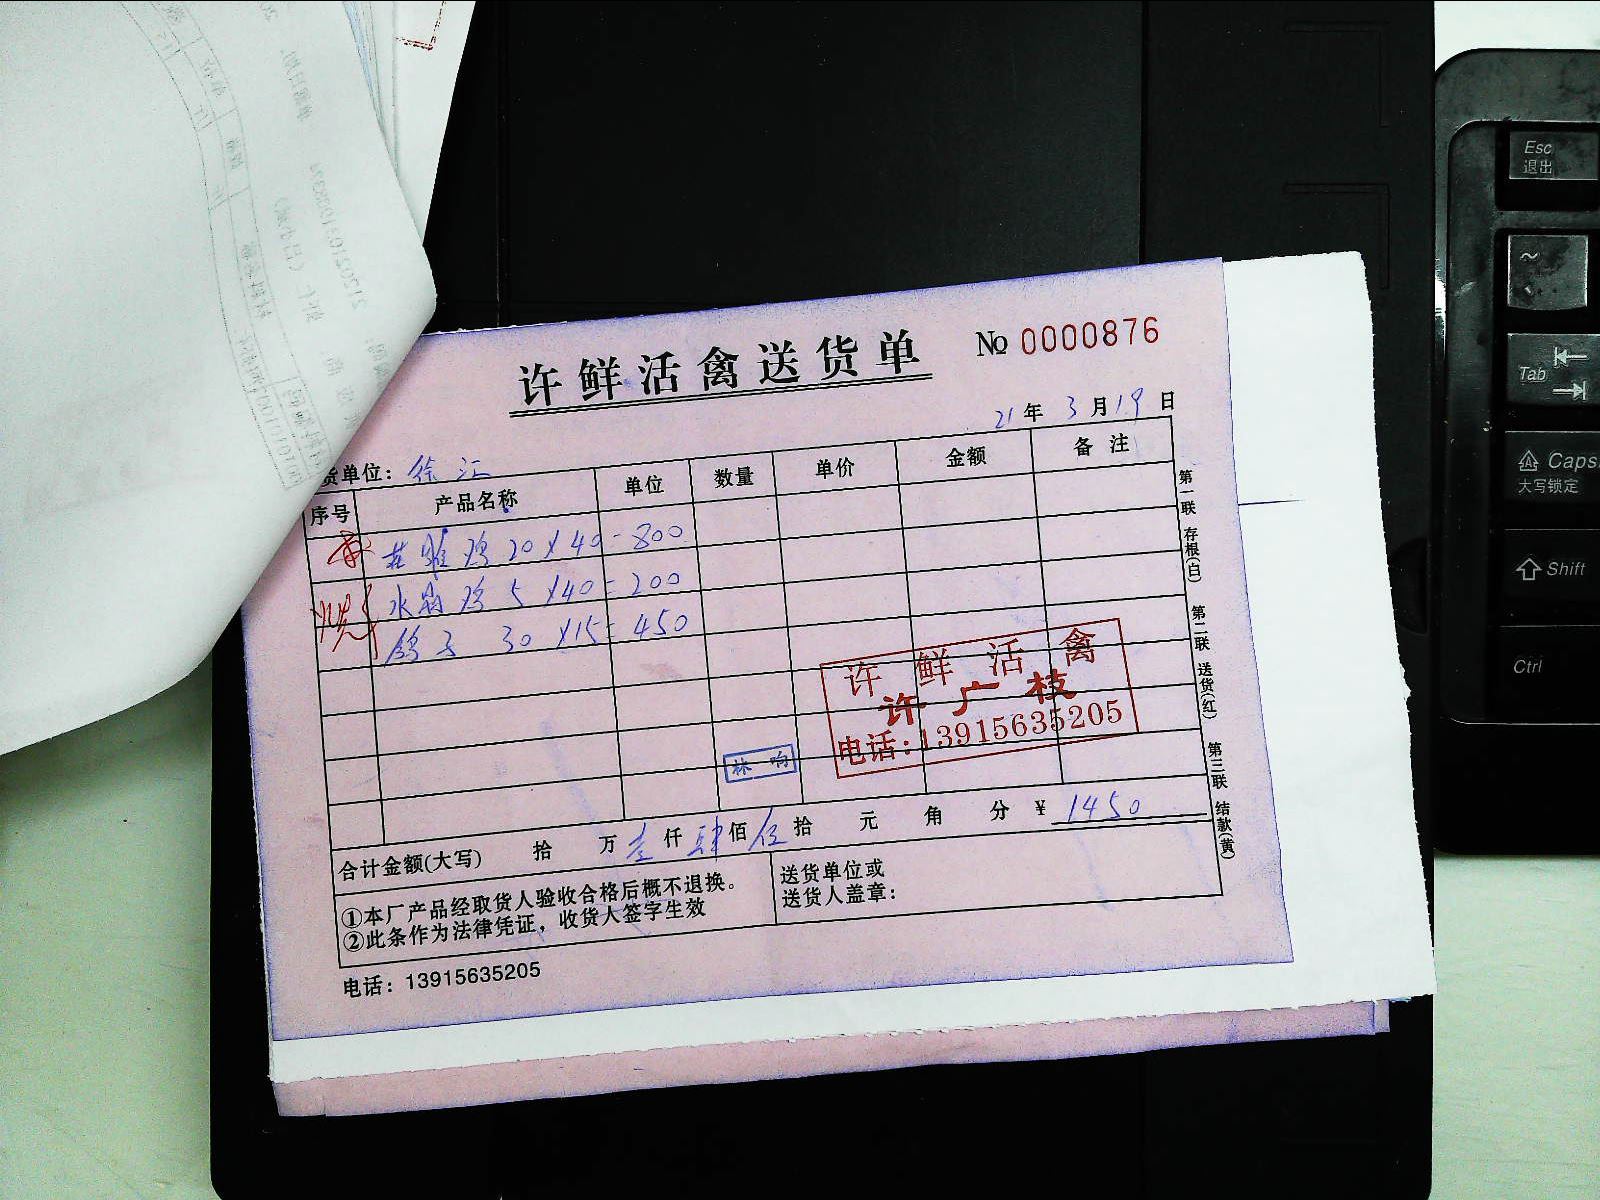 许鲜活禽送货单
№ 0000876
21年 3月19日
货单位：徐江
序号 产品名称 单位 数量 单价 金额 备注
鸡 20×40=800
水 鸡 5×40=200
鸽子 30×15=450
许鲜活禽
许广枝
电话:13915635205
林 响
合计金额(大写) 拾 万 壹仟 肆佰 伍拾 元 角 分 ¥ 1450
①本厂产品经取货人验收合格后概不退换。
②此条作为法律凭证，收货人签字生效
送货单位或
送货人盖章：
电话：13915635205
第一联 存根(白) 第二联 送货(红) 第三联 结款(黄)
Esc
退出
~
Tab
Caps
大写锁定
Shift
Ctrl